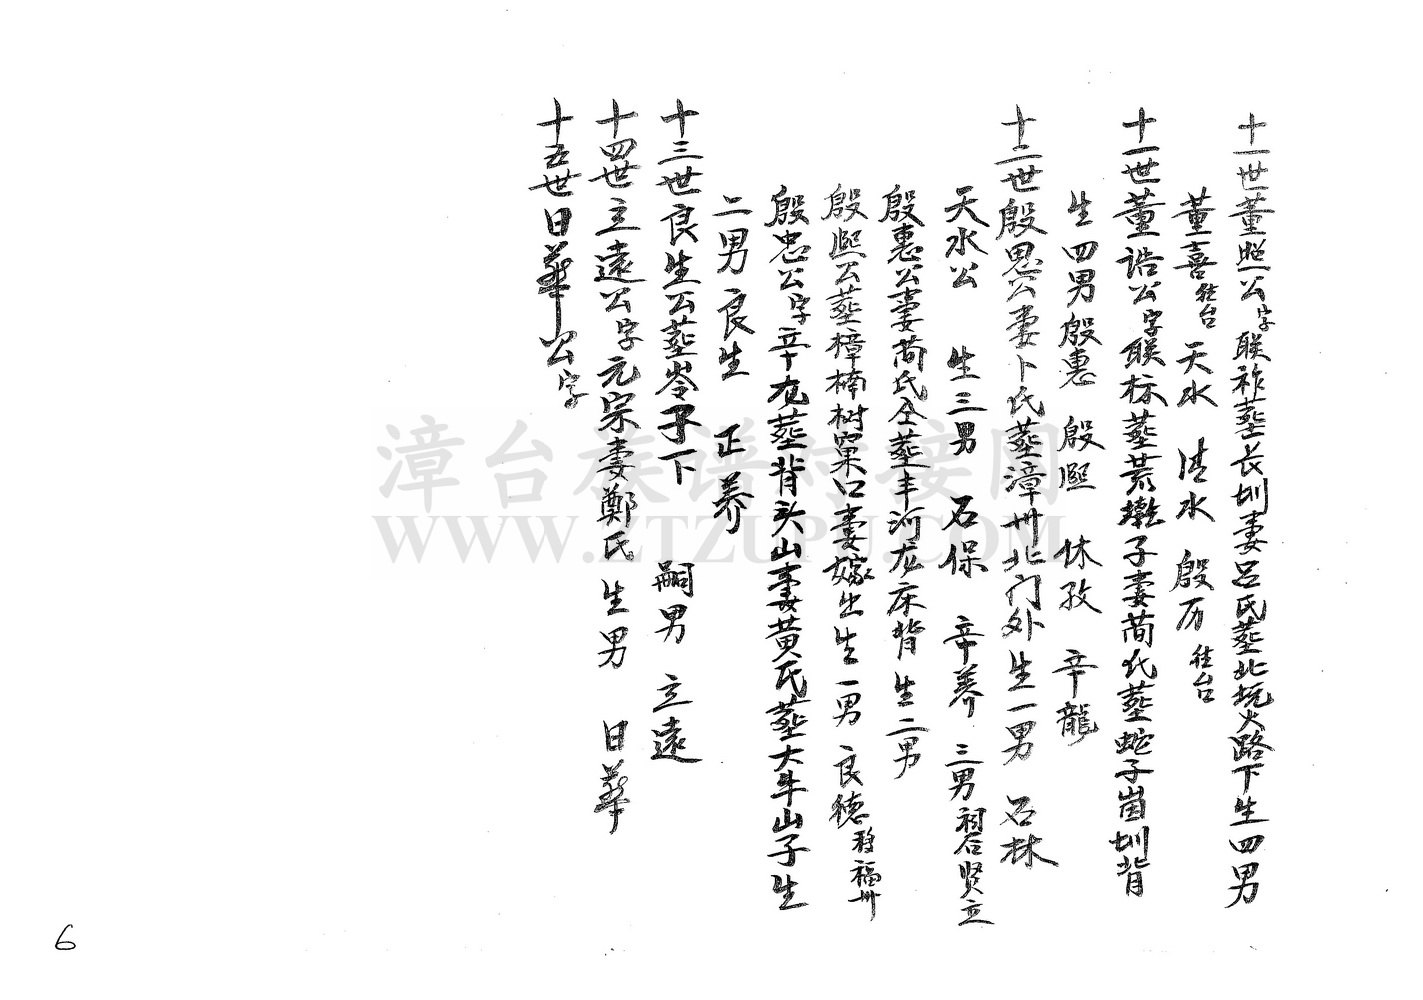 十一世董照公字联祚墓长圳妻呂氏墓北坑大路下生四男
董喜往台 天水 清水 殷历 往台
十一世董誥公字联标墓荒墩子妻蕳氏墓蛇子崗圳背
生四男殷惠 殷熙 休孜 辛龍
十二世殷思公妻卜氏墓漳卅北门外生一男 石林
天水公 生三男 石保 辛养 三男 贤立
殷惠公妻蕳氏仝墓丰河龙床背 生二男
殷熙公墓樟楠树窠口妻嫁出生一男 良德 移福卅
殷忠公字辛龙墓背头山妻黄氏墓大牛山子生
二男 良生 正养
十三世良生公墓岺子下 嗣男 立遠
十四世立遠公字元宗妻鄭氏 生男 日華
十五世日華公字
漳台族谱对接网
WWW.ZTZUPU.COM
6